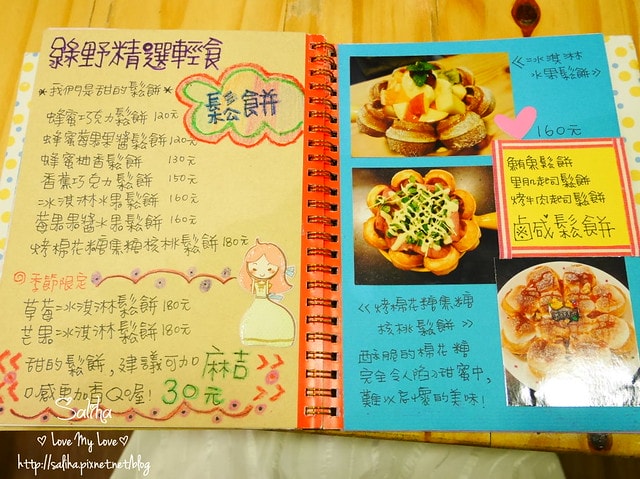 綠野精選輕食
鬆餅
*我們是甜的鬆餅*
蜂蜜巧克力鬆餅 120元
蜂蜜莓果果醬鬆餅 120元
蜂蜜柚香鬆餅 130元
香蕉巧克力鬆餅 150元
冰淇淋水果鬆餅 160元
莓果果醬水果鬆餅 160元
烤棉花糖焦糖核桃鬆餅 180元
季節限定
草莓冰淇淋鬆餅 180元
芒果冰淇淋鬆餅 180元
甜的鬆餅,建議可加麻吉
口感更加香Q喔! 30元
《冰淇淋
水果鬆餅》
160元
鮪魚鬆餅
里肌起司鬆餅
烤牛肉起司鬆餅
鹹鬆餅
《烤棉花糖焦糖
核桃鬆餅》
酥脆的棉花糖
完全令人陷入甜蜜中,
難以忘懷的美味!
Saliha
♡ Love My Love ♡
http://saliha.pixnet.net/blog